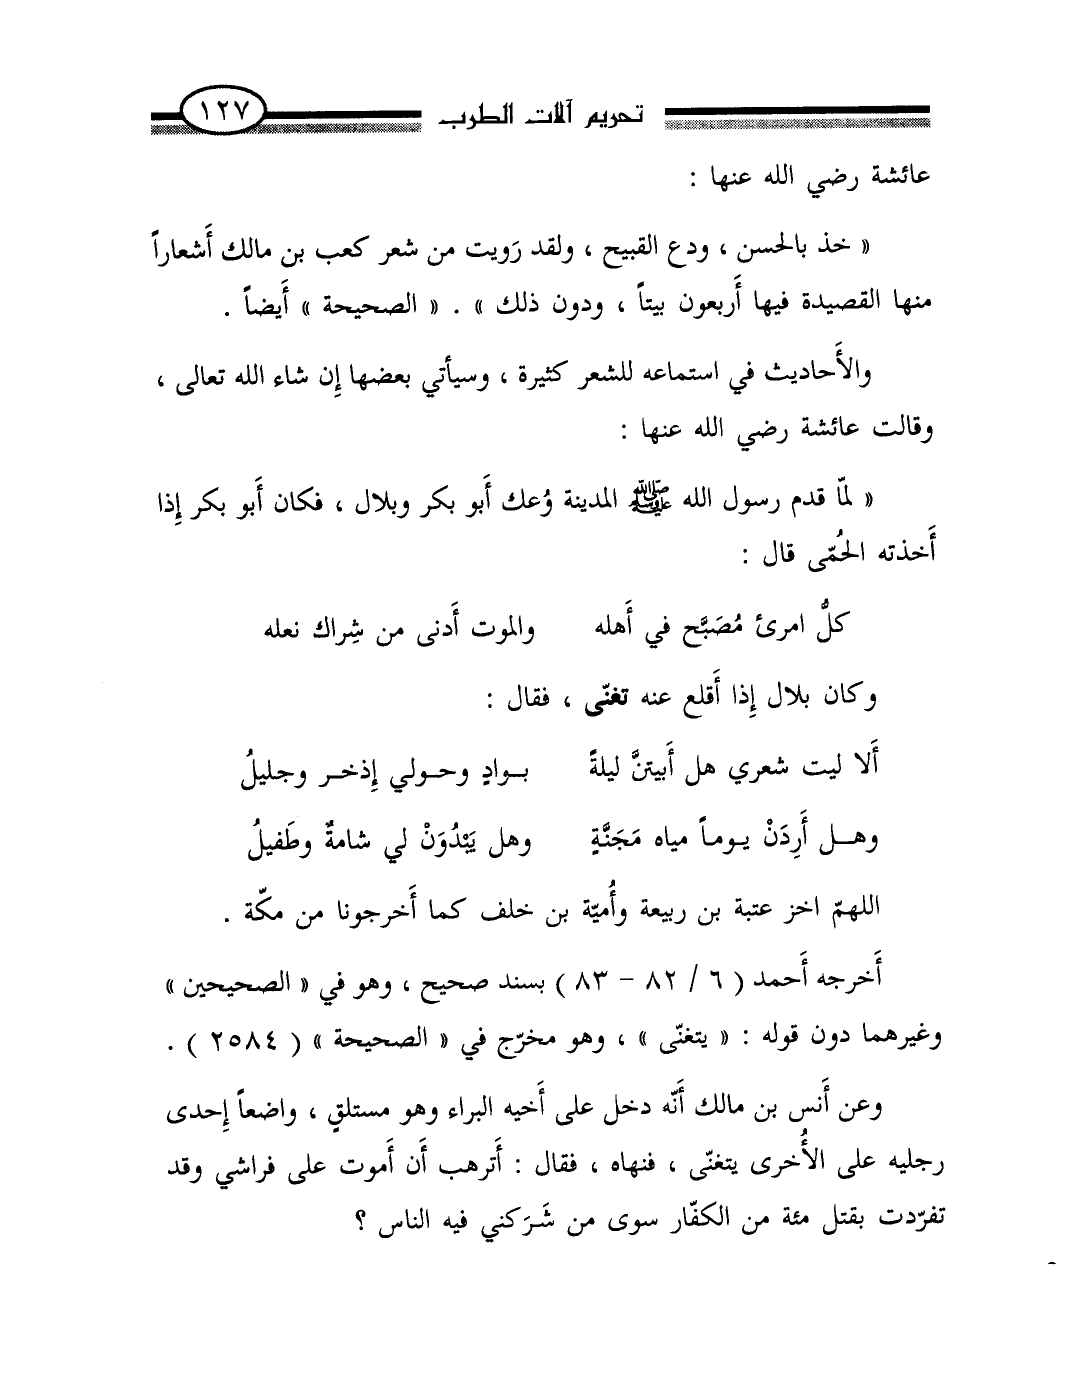 تحريم آلات الطرب ١٢٧
عائشة رضي الله عنها :
« خذ بالحسن ، ودع القبيح ، ولقد رَويت من شعر كعب بن مالك أَشعاراً
منها القصيدة فيها أَربعون بيتاً ، ودون ذلك » . « الصحيحة » أَيضاً .
والأَحاديث في استماعه للشعر كثيرة ، وسيأتي بعضها إِن شاء الله تعالى ،
وقالت عائشة رضي الله عنها :
« لمّا قدم رسول الله ﷺ المدينة وُعك أَبو بكر وبلال ، فكان أَبو بكر إِذا
أَخذته الحُمّى قال :
كلُّ امرئ مُصَبَّح في أَهله والموت أَدنى من شِراك نعله
وكان بلال إِذا أَقلع عنه تغنّى ، فقال :
أَلا ليت شعري هل أَبيتنَّ ليلةً بـوادٍ وحـولي إِذخـر وجليلُ
وهـل أَرِدَنْ يـوماً مياه مَجَنَّةٍ وهل يَبْدُوَنْ لي شامةٌ وطَفيلُ
اللهمّ اخز عتبة بن ربيعة وأُميّة بن خلف كما أَخرجونا من مكّة .
أَخرجه أَحمد ( ٦ / ٨٢ - ٨٣ ) بسند صحيح ، وهو في « الصحيحين »
وغيرهما دون قوله : « يتغنّى » ، وهو مخرّج في « الصحيحة » ( ٢٥٨٤ ) .
وعن أَنس بن مالك أَنّه دخل على أَخيه البراء وهو مستلقٍ ، واضعاً إِحدى
رجليه على الأُخرى يتغنّى ، فنهاه ، فقال : أَترهب أَن أَموت على فراشي وقد
تفرّدت بقتل مئة من الكفّار سوى من شَرَكني فيه الناس ؟